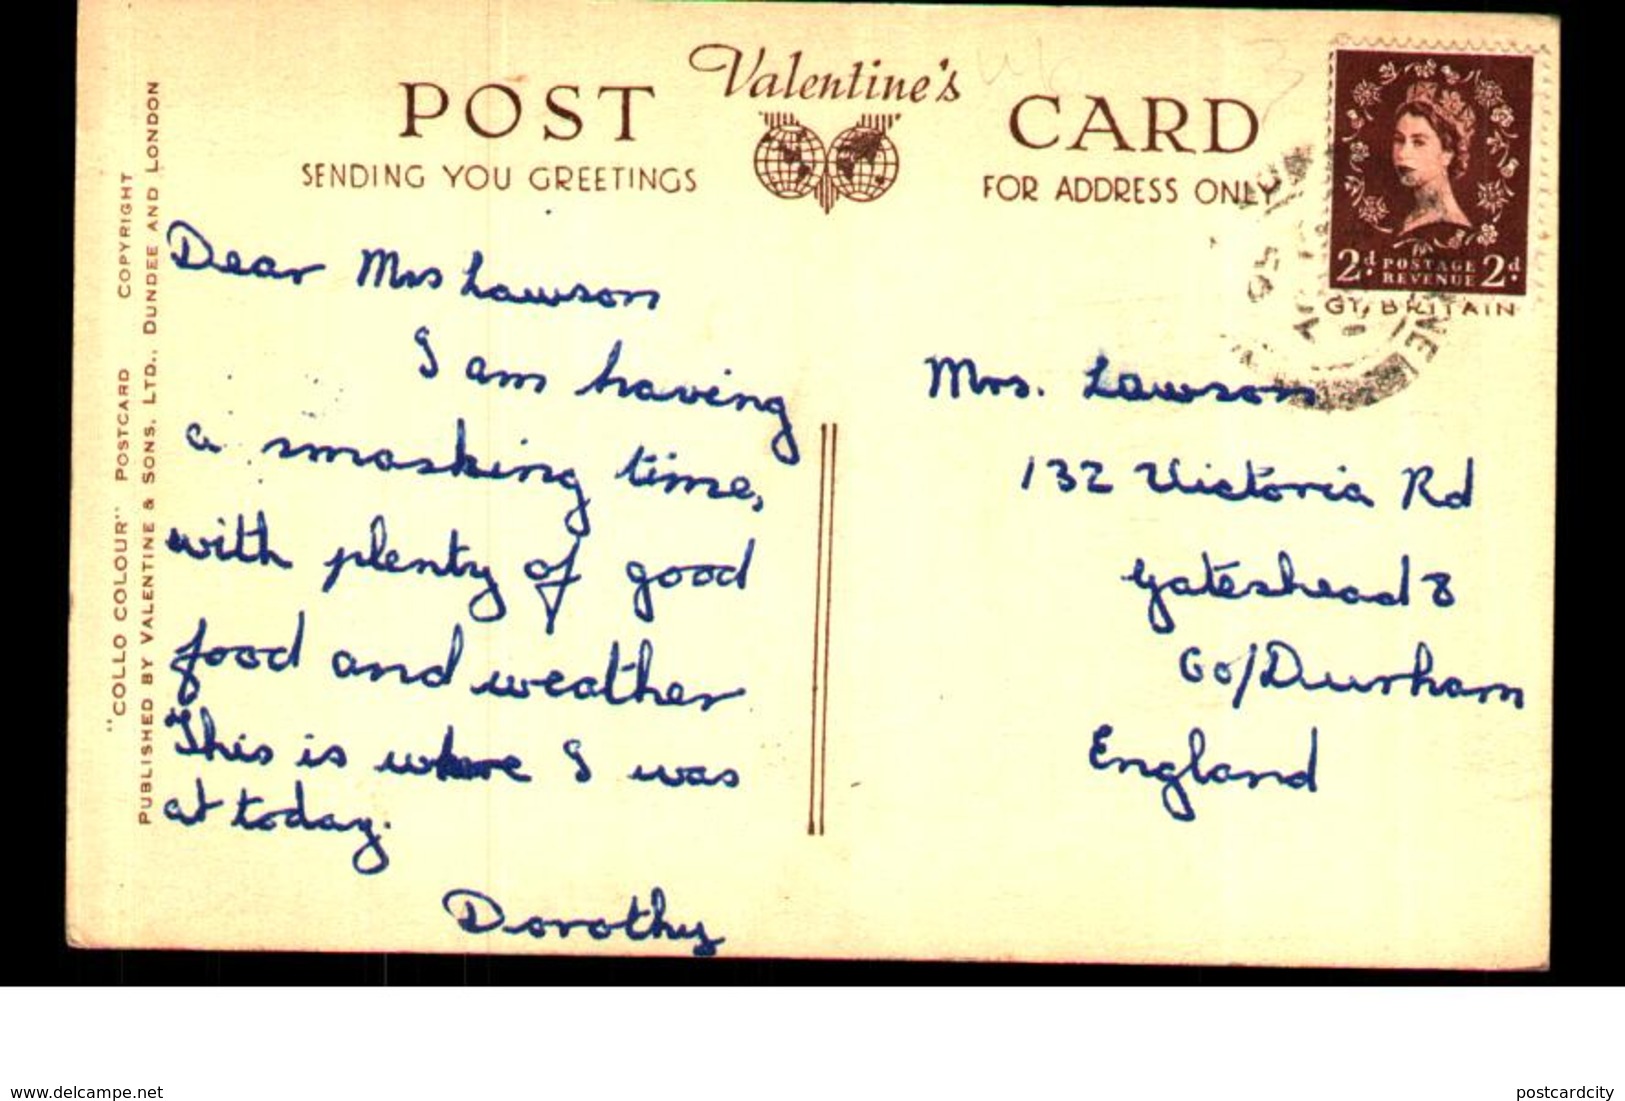 POST Valentine's CARD
SENDING YOU GREETINGS
FOR ADDRESS ONLY
"COLLO COLOUR" POSTCARD COPYRIGHT
PUBLISHED BY VALENTINE & SONS, LTD., DUNDEE AND LONDON
Dear Mrs Lawson
I am having
a smashing time,
with plenty of good
food and weather
This is where I was
at today.
Dorothy
2d. POSTAGE REVENUE 2d.
GT. BRITAIN
Mrs. Lawson
132 Victoria Rd
Gateshead 8
Co/Durham
England
www.delcampe.net
postcardcity